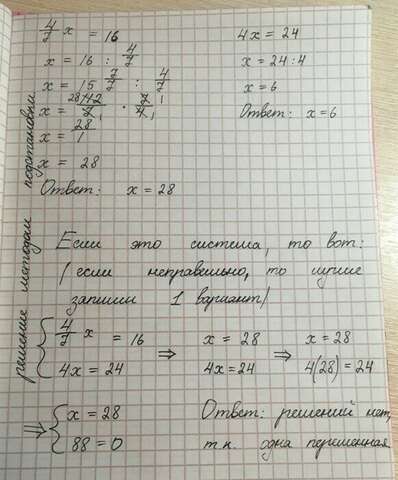 4/7 x = 16
x = 16 : 4/7
x = 15 7/7 : 4/7
x = 112/7 · 7/4
x = 28/1
x = 28
Ответ: x = 28
4x = 24
x = 24 : 4
x = 6
Ответ: x = 6
решение методом подстановки
Если это система, то вот:
(если неправильно, то лучше
запиши 1 вариант)
{ 4/7 x = 16
4x = 24
⇒ x = 28
4x = 24
⇒ x = 28
4(28) = 24
⇒ { x = 28
88 = 0
Ответ: решений нет,
т.к. одна переменная